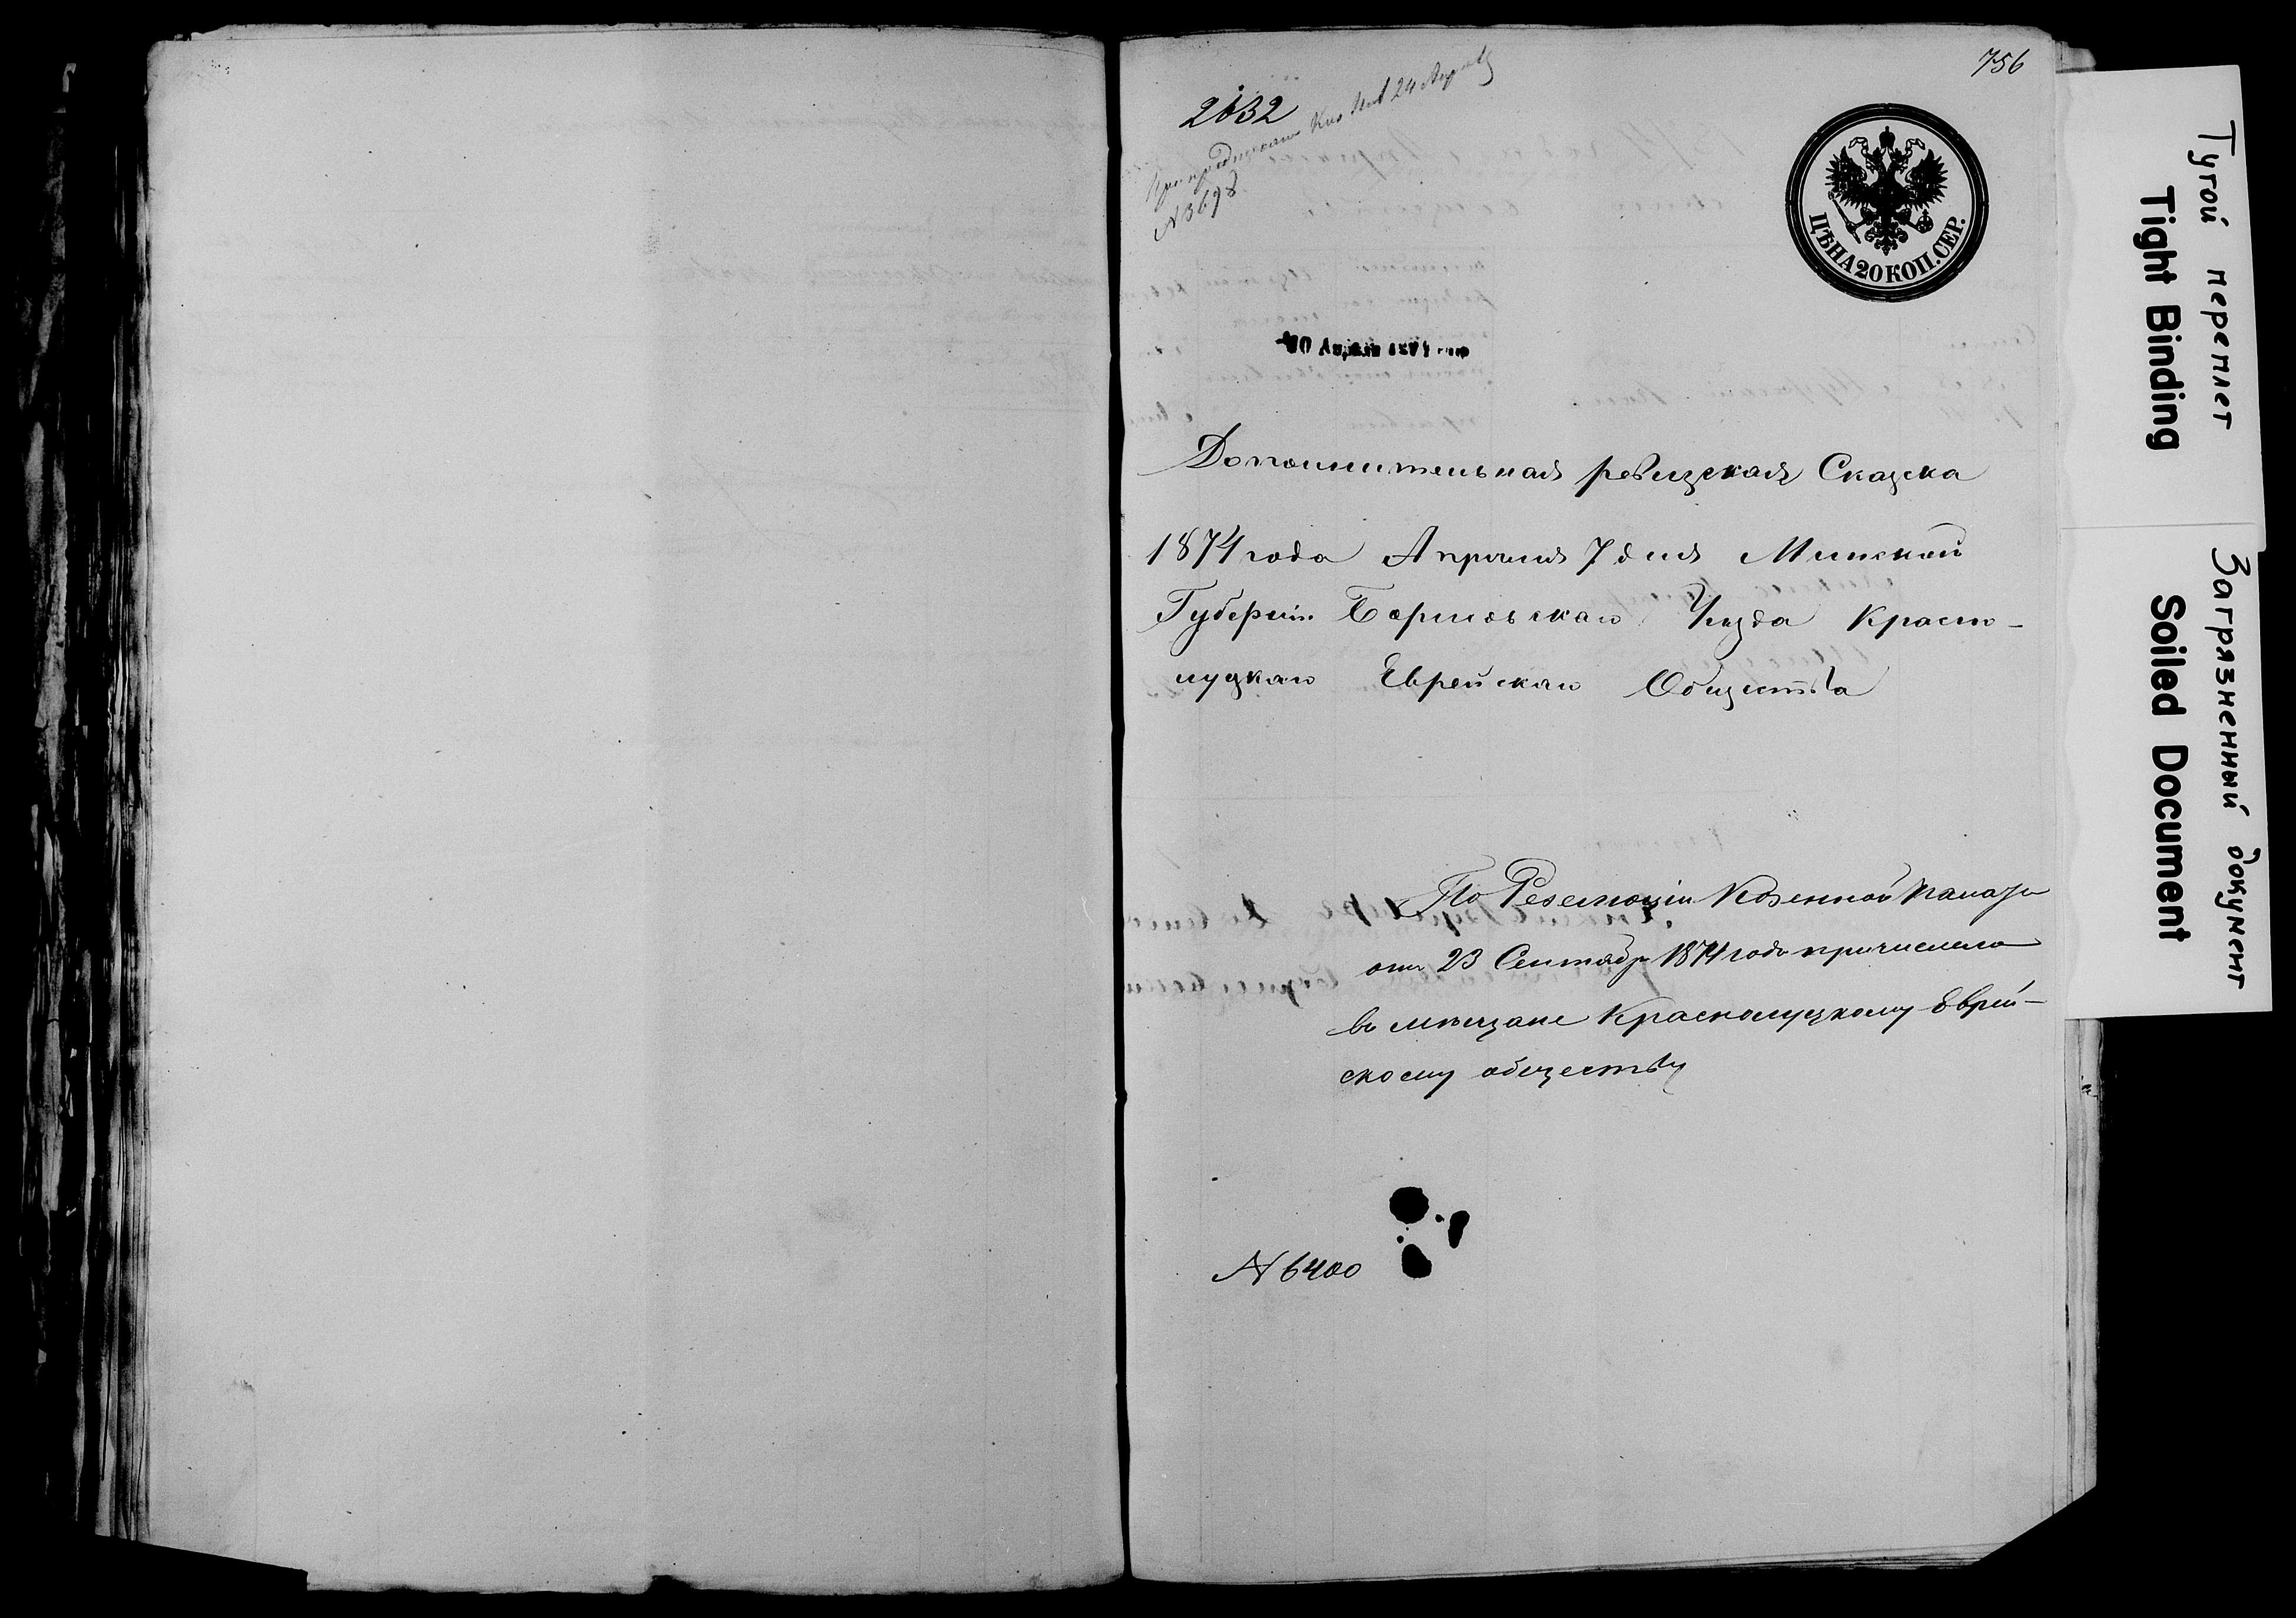 756
2632
При предписании Каз Пал 24 Апреля
№ 3698
ЦѢНА 20 КОП. СЕР.
Дополнительная ревизская Сказка
1874 года Апрѣля 7 дня Минской
Губерніи Борисовскаго Уѣзда Красно-
луцкаго Еврейскаго Общества
По Резолюціи Казенной палаты
отъ 23 Сентября 1874 года причислена
въ мѣщане Краснолуцкому Еврей-
скому обществу
№ 6400
Тугой переплет
Tight Binding
Загрязненный документ
Soiled Document